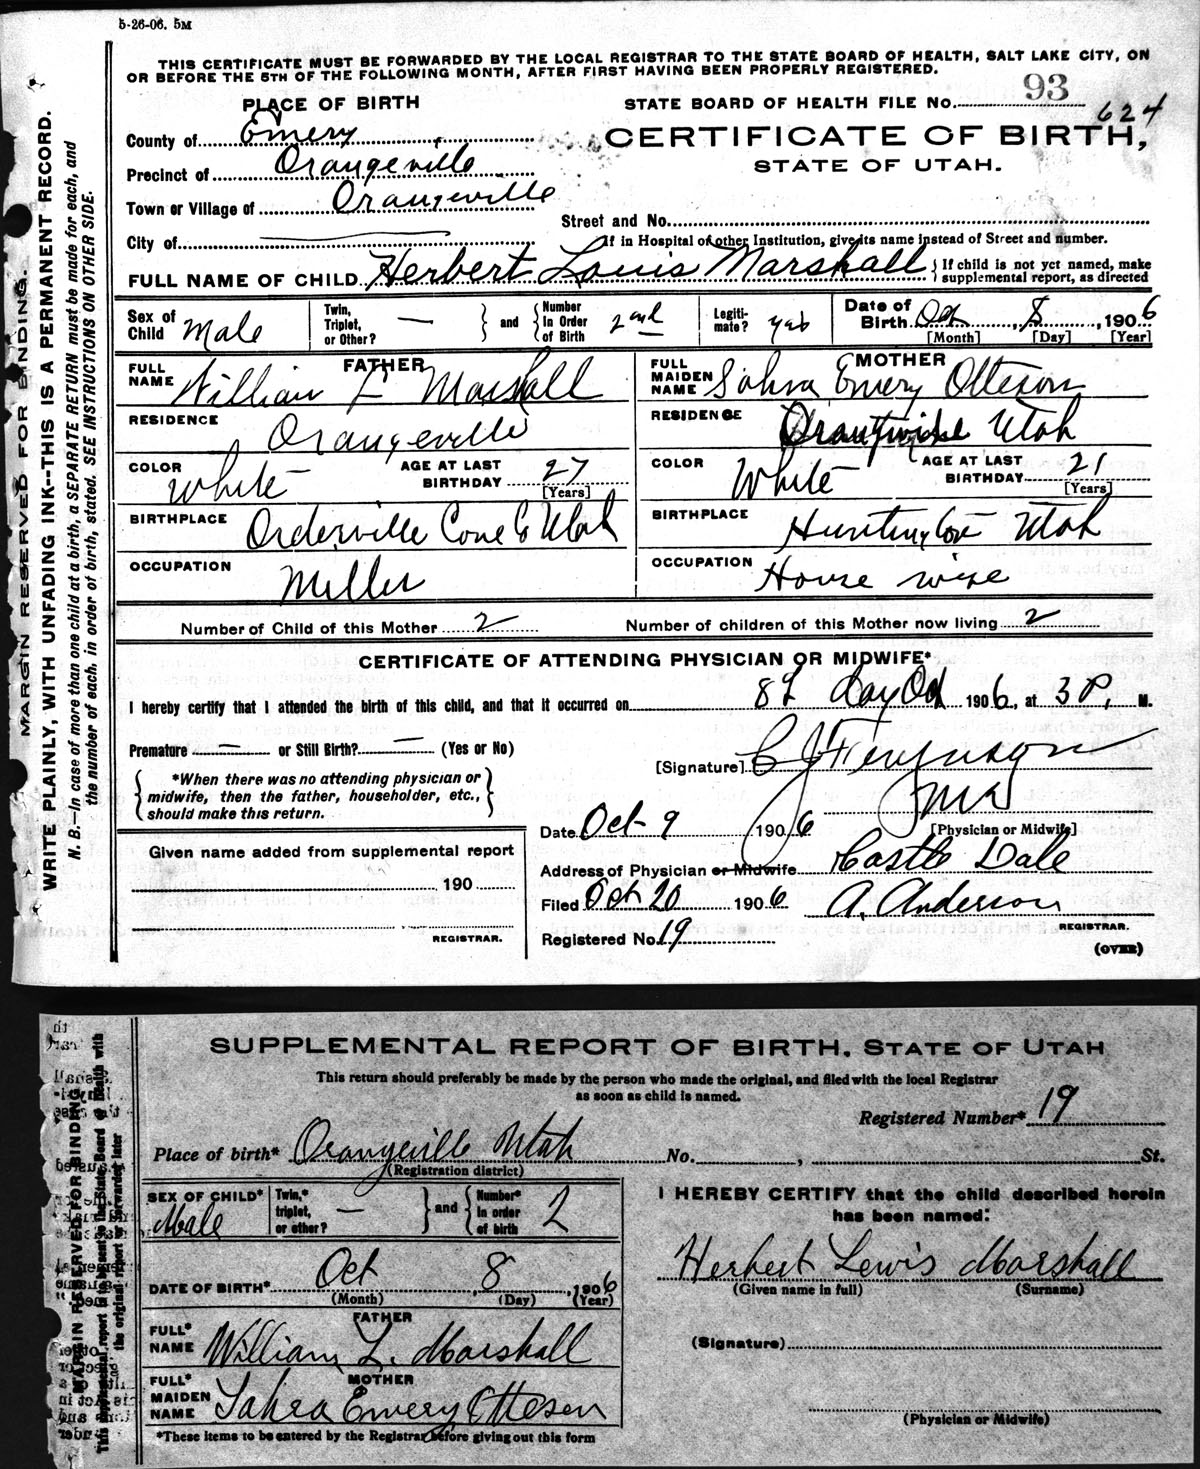 5-26-06. 5M
THIS CERTIFICATE MUST BE FORWARDED BY THE LOCAL REGISTRAR TO THE STATE BOARD OF HEALTH, SALT LAKE CITY, ON
OR BEFORE THE 5TH OF THE FOLLOWING MONTH, AFTER FIRST HAVING BEEN PROPERLY REGISTERED.
PLACE OF BIRTH
STATE BOARD OF HEALTH FILE No. 93
624
County of Emery
CERTIFICATE OF BIRTH,
STATE OF UTAH.
Precinct of Orangeville
Town or Village of Orangeville
Street and No.
City of
If in Hospital or other Institution, give its name instead of Street and number.
FULL NAME OF CHILD Herbert Louis Marshall { If child is not yet named, make supplemental report, as directed
Sex of Child Male
Twin, Triplet, or Other? —
and
Number In Order of Birth 2nd
Legiti- mate? yes
Date of Birth Oct 8, 1906
[Month] [Day] [Year]
FATHER
FULL NAME William L Marshall
RESIDENCE Orangeville
COLOR White
AGE AT LAST BIRTHDAY 27 [Years]
BIRTHPLACE Orderville Utah
OCCUPATION Miller
MOTHER
FULL MAIDEN NAME Emery Otteson
RESIDENCE Utah
COLOR White
AGE AT LAST BIRTHDAY 21 [Years]
BIRTHPLACE Huntington Utah
OCCUPATION House wife
Number of Child of this Mother 2
Number of children of this Mother now living 2
CERTIFICATE OF ATTENDING PHYSICIAN OR MIDWIFE*
I hereby certify that I attended the birth of this child, and that it occurred on 8 day Oct 1906, at 3 P, M.
Premature — or Still Birth? — (Yes or No)
[Signature] C J Ferguson
*When there was no attending physician or
midwife, then the father, householder, etc.,
should make this return.
[Physician or Midwife]
Date Oct 9 1906
Address of Physician or Midwife Castle Dale
Filed Oct 20 1906 A. Anderson
REGISTRAR.
Registered No. 19
(OVER)
Given name added from supplemental report
190
REGISTRAR.
MARGIN RESERVED FOR BINDING.
WRITE PLAINLY, WITH UNFADING INK--THIS IS A PERMANENT RECORD.
N. B.—In case of more than one child at a birth, a SEPARATE RETURN must be made for each, and
the number of each, in order of birth, stated. SEE INSTRUCTIONS ON OTHER SIDE.
SUPPLEMENTAL REPORT OF BIRTH, STATE OF UTAH
This return should preferably be made by the person who made the original, and filed with the local Registrar
as soon as child is named.
Registered Number* 19
Place of birth* Orangeville Utah No. , St.
(Registration district)
SEX OF CHILD* Male
Twin,* triplet, or other? —
and
Number* in order of birth 2
DATE OF BIRTH* Oct 8, 1906
(Month) (Day) (Year)
FATHER
FULL* NAME William L. Marshall
MOTHER
FULL* MAIDEN NAME Emery Ottesen
*These items to be entered by the Registrar before giving out this form
I HEREBY CERTIFY that the child described herein
has been named:
Herbert Lewis Marshall
(Given name in full) (Surname)
(Signature)
(Physician or Midwife)
MARGIN RESERVED FOR BINDING